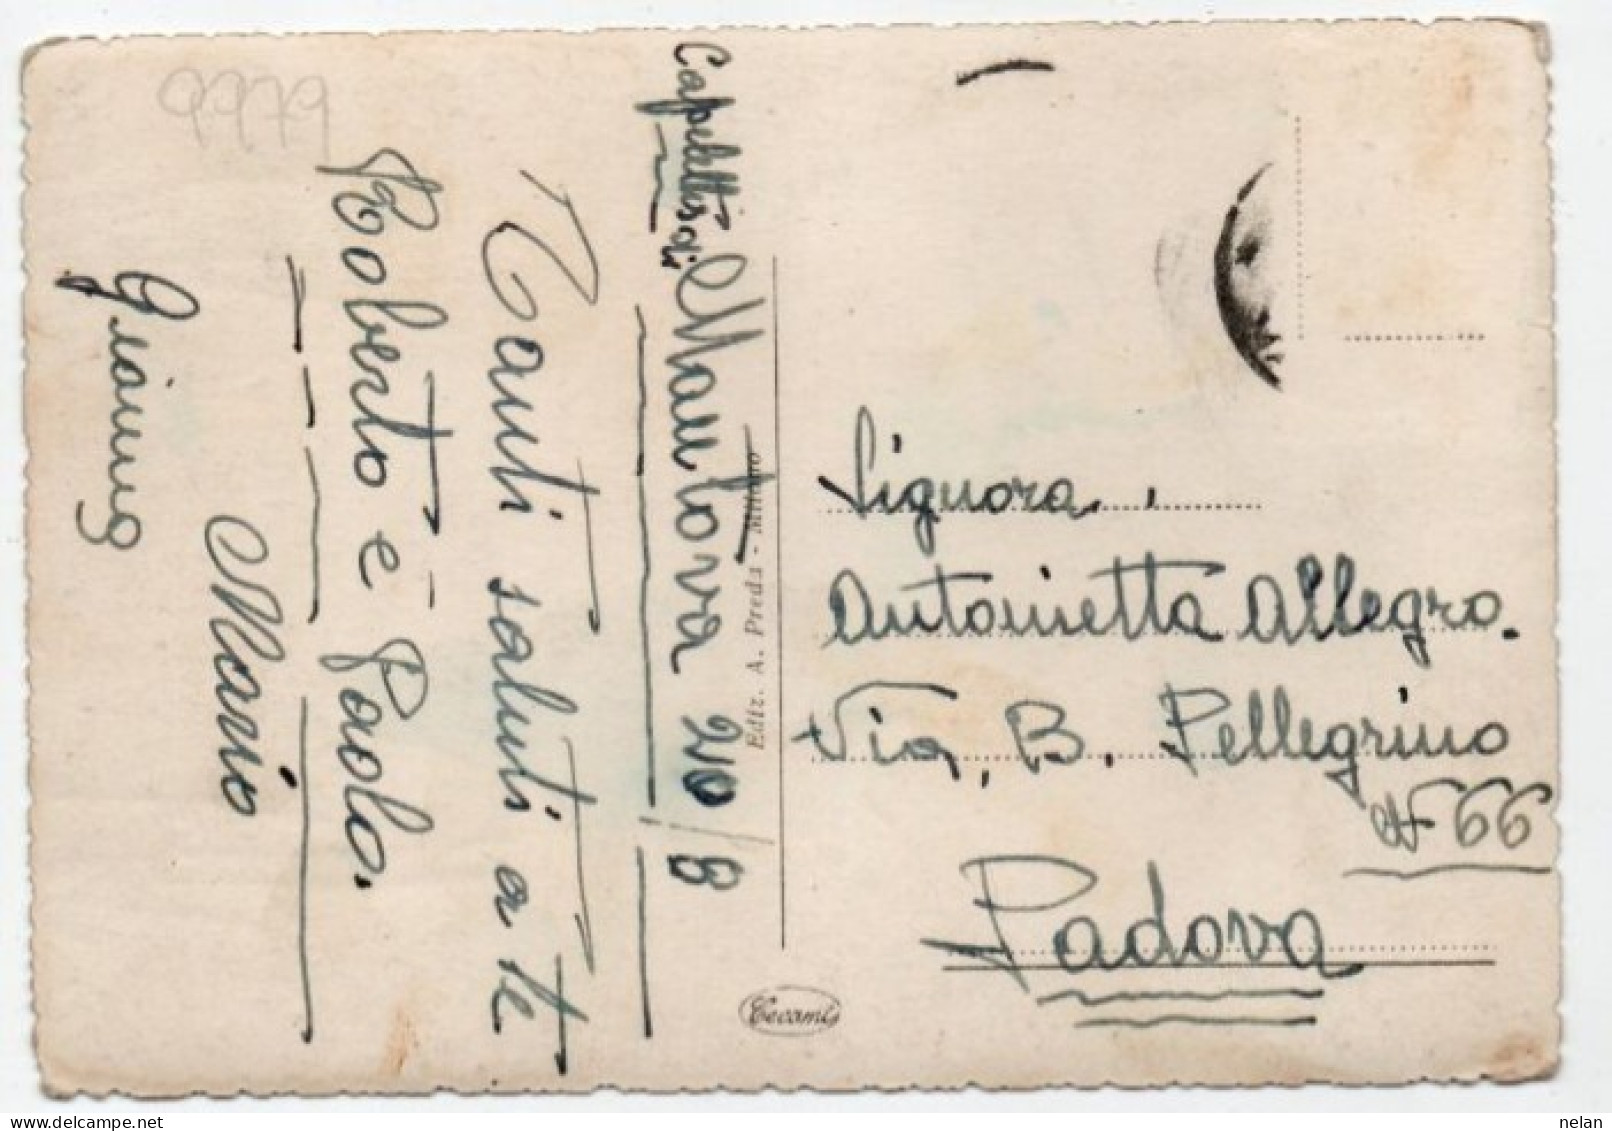 Cappelletta di
Mantova 20/8
Tanti saluti a te
Roberto e Paolo.
Mario
Gianni
Editr. A. Preda - Milano
Cecami
Signora
Antonietta Allegro.
Via, B. Pellegrino
66
Padova
delcampe.net
nelan